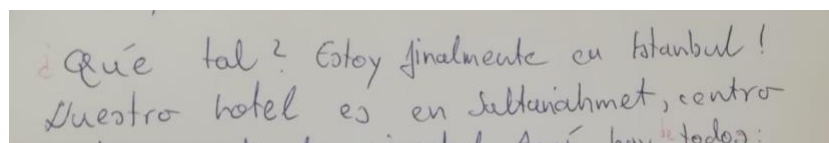 ¿Qué tal? Estoy finalmente en Istanbul!
Nuestro hotel es en Sultanahmet, centro
hay todos: